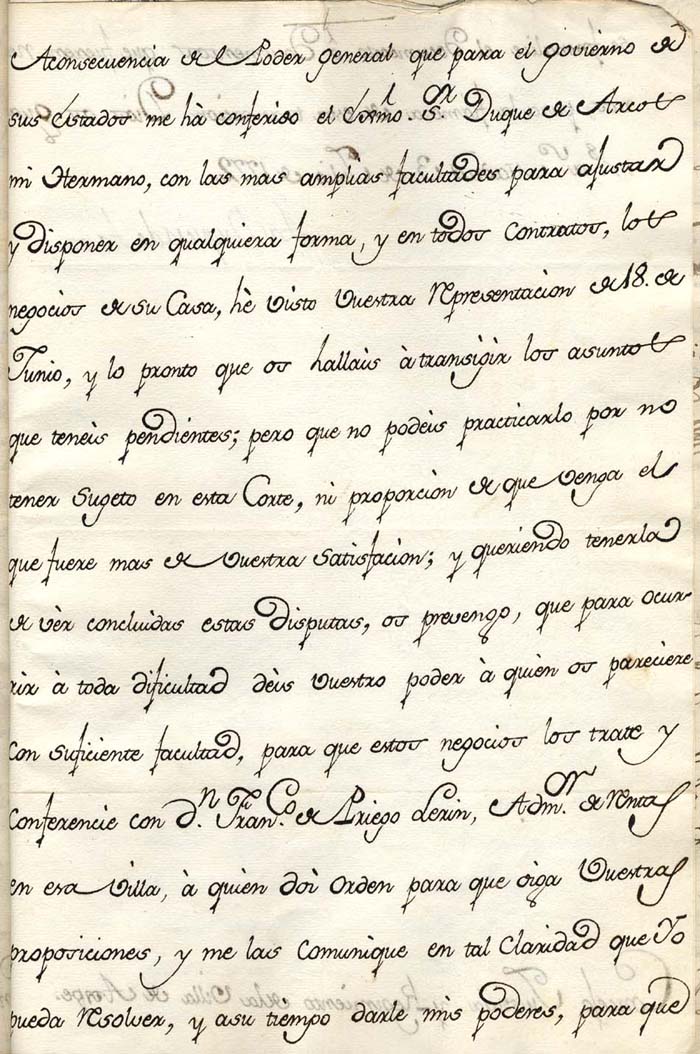 Aconsecuencia de Poder general que para el govierno de
sus Estados me hà conferido el Exmo. Sr. Duque de Arcos
mi Hermano, con las mas amplias facultades para ajustar
y disponer en qualquiera forma, y en todos Contratos, los
negocios de su Casa, hè visto vuestra Representacion de 18. de
Junio, y lo pronto que os hallàis à transigir los asuntos
que tenèis pendientes; pero que no podèis practicarlo por no
tener sugeto en esta Corte, ni proporcion de que venga el
que fuere mas de vuestra satisfacion; y queriendo tenerla
de vèr concluidas estas disputas, os prevengo, que para ocur-
rir à toda dificultad dèis vuestro poder à quien os pareciere
con suficiente facultad, para que estos negocios los trate y
conferencie con Dn. Franco. de Priego Lerin, Admor. de rentas
en esa Villa, à quien doi orden para que oiga vuestras
proposiciones, y me las comunique en tal claridad que Yo
pueda resolver, y asu tiempo darle mis poderes, para que